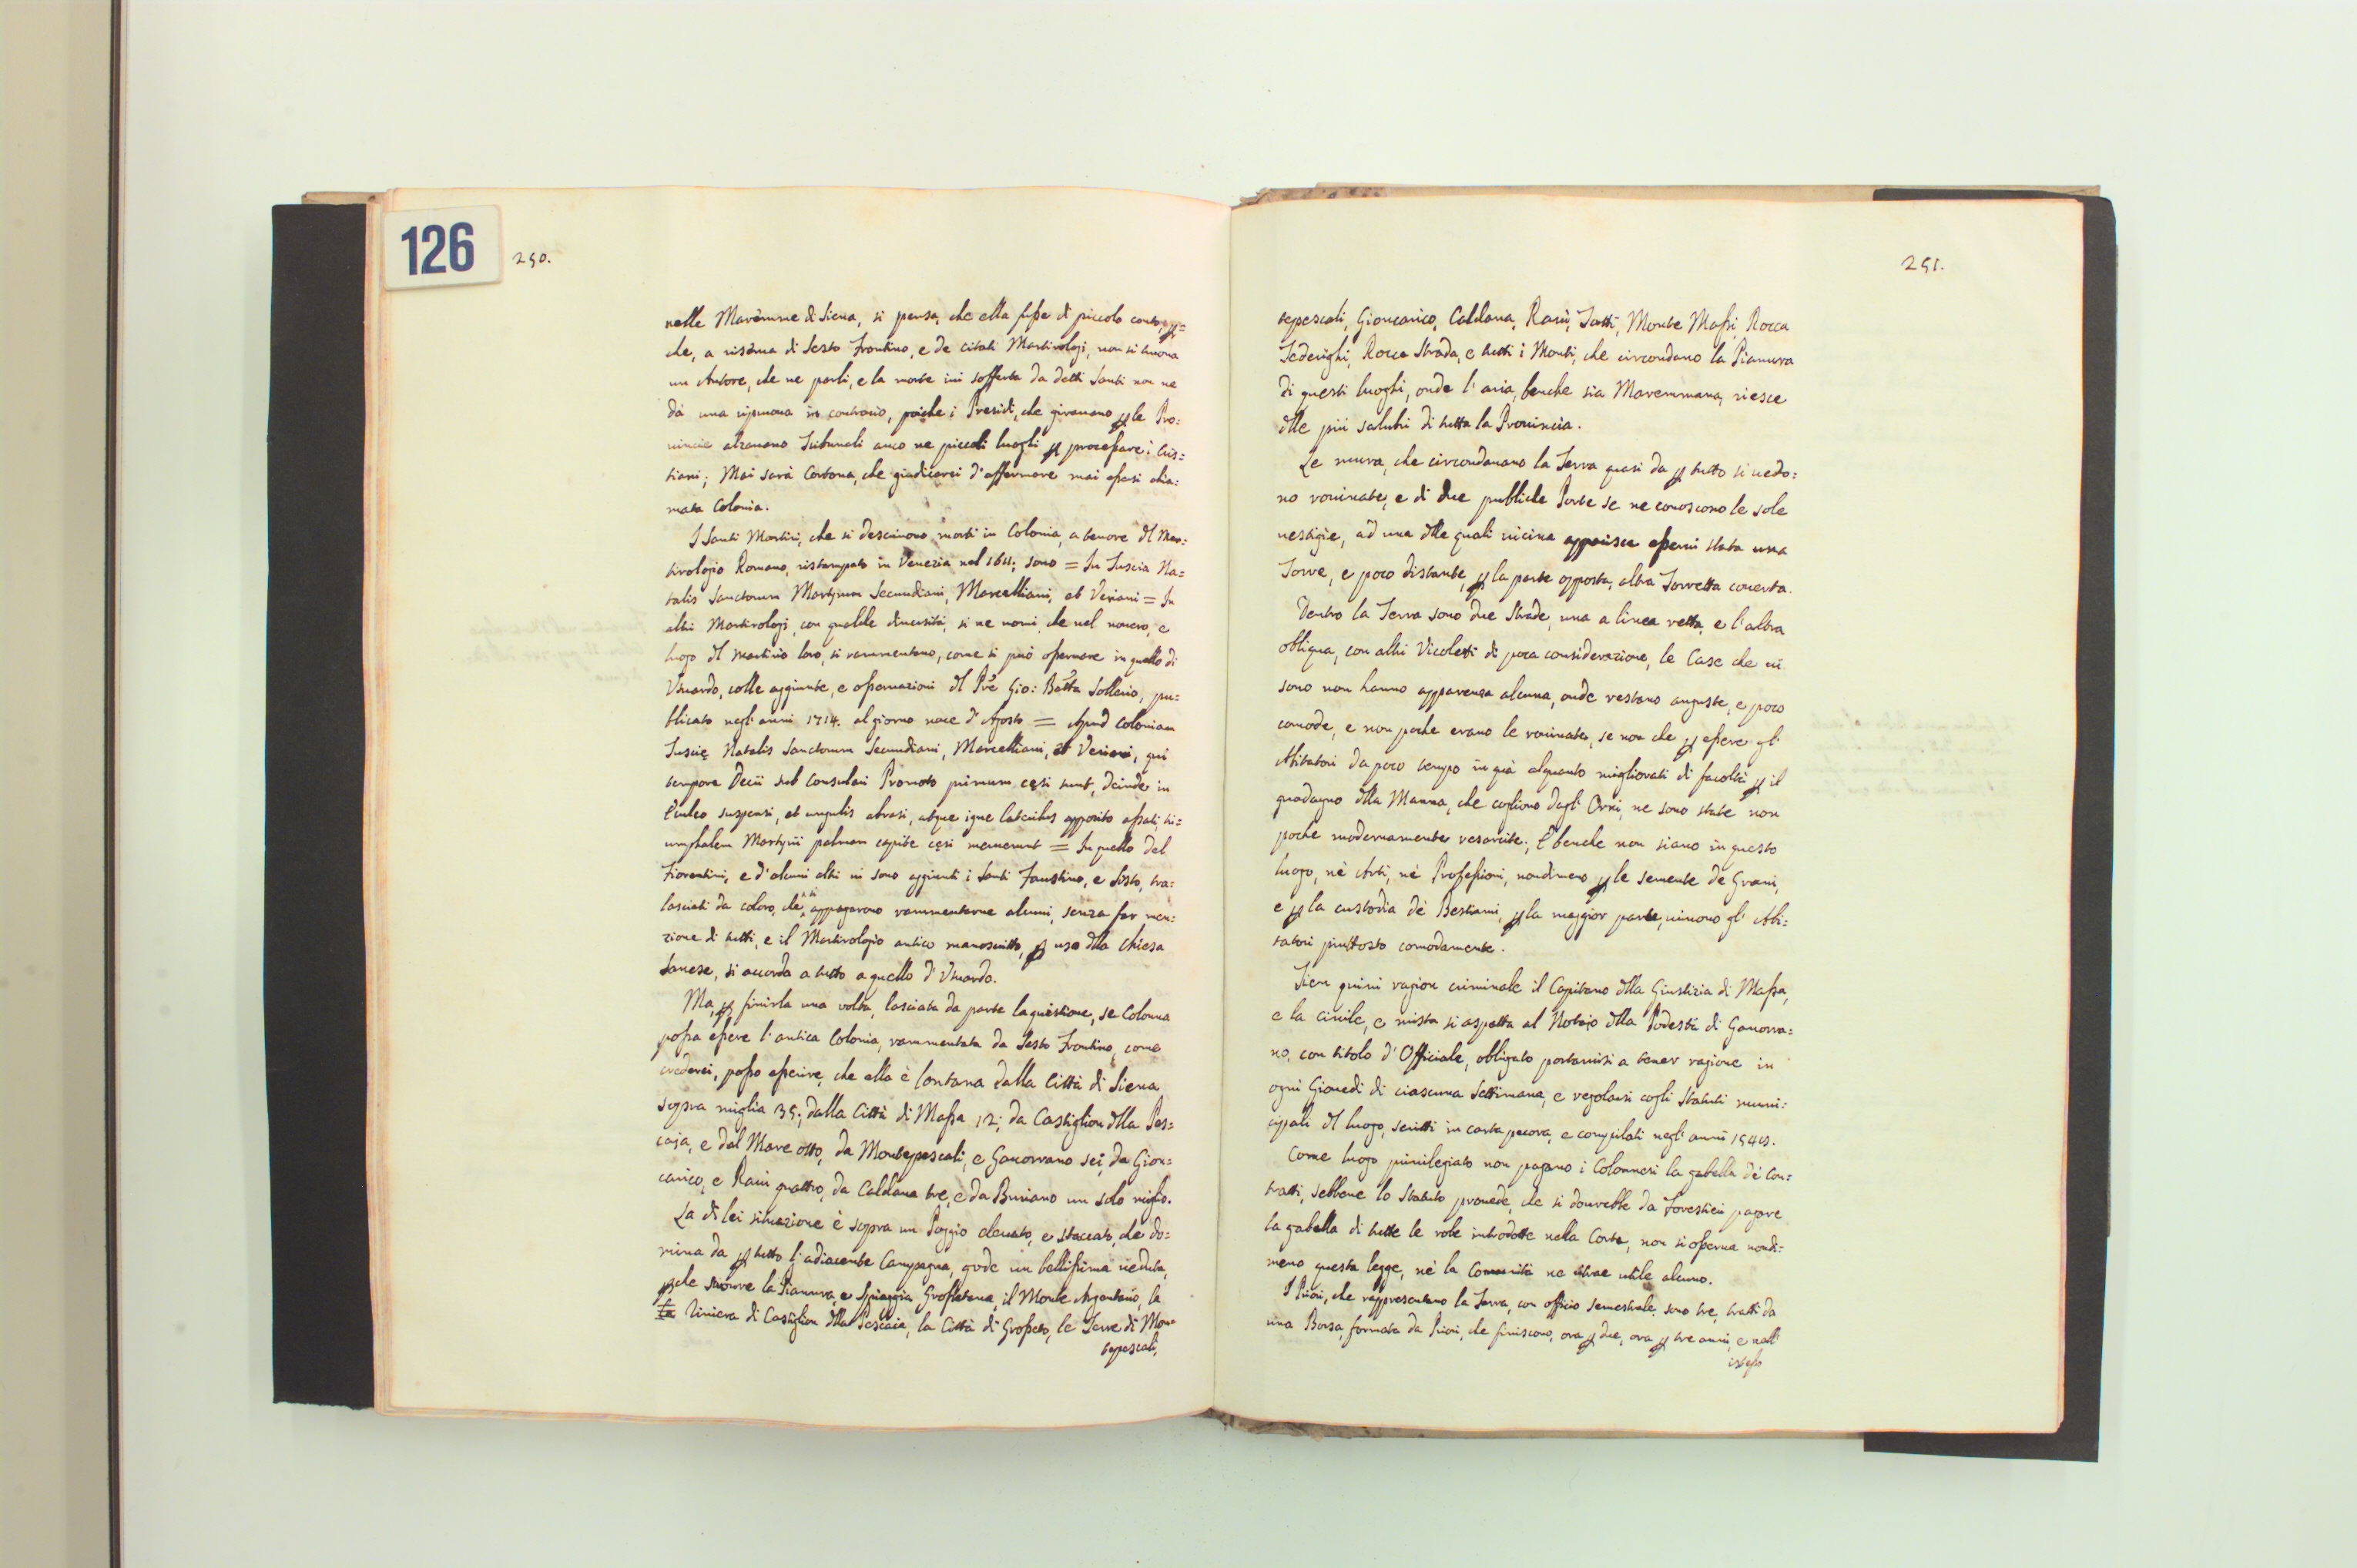 126
250.
nelle Maremme di Siena, si pensa, che ella fosse di piccolo conto, p=
che, a riserva di Sesto Frontino, e de citati Martirologi, non si truova
un Autore, che ne parli, e la morte ivi sofferta da detti Santi non ne
dà una ripruova in contrario, poiche i Presidi, che giravano p le Pro=
vincie alzavano Tribunali anco ne piccoli luoghi p processare i Cris=
tiani; Mai sarà Cortona, che giudicarei d'affermare mai essersi chia=
mata Colonia.
I Santi Martiri, che si descivono morti in Colonia, a tenore dl Mar=
tirologio Romano, ristampato in Venezia nel 1611; sono = In Tuscia Na=
talis Sanctorum Martyrum Secundiani, Marcelliani, et Veriani = In
altri Martirologi, con qualche diversità, si ne nomi, che nel novero, e
luogo dl Martirio loro, si rammentano, come si può osservare in quello di
Vsuardo, colle aggiunte, e osservazioni dl Pre Gio: Batta Sollerio, pu=
blicato negl'anni 1714. al giorno nove d'Agosto = Apud Coloniam
Tuscię Natalis Sanctorum Secundiani, Marcelliani, et Veriani, qui
tempore Decii sub consulari Promoto primum cęsi sunt, deinde in
Eculeo suspensi, et ungulis abrasi, atque igne lateribus apposito assati, tri=
umphalem Martyrii palmam capite cęsi meruerunt = In quello del
Fiorentini, e d'alcuni altri vi sono aggiunti i Santi Faustino, e Sisto, tra=
lasciati da coloro, che si appagarono rammentarne alcuni, senza far men=
zione di tutti, e il Martirologio antico manoscritto, p uso dlla Chiesa
Sanese, si accorda a tutto a quello d'Vsuardo.
Ma, p finirla una volta, lasciata da parte la questione, se Colonna
possa essere l'antica Colonia, rammentata da Sesto Frontino, come
crederei, posso asserire, che ella è lontana dalla Città di Siena
sopra miglia 35; dalla Città di Massa 12; da Castiglion dlla Pes=
caja, e dal Mare otto, da Montepescali, e Gavorrano sei, da Giun=
carico, e Ravi quattro, da Caldana tre, e da Buriano un solo miglio.
La di lei situazione è sopra un Poggio elevato, e staccato, che do=
mina da p tutto l'adiacente Campagna, gode un bellissima veduta,
pche scuopre la Pianura, e Spiaggia Grossetana, il Monte Argentario, la
Riviera di Castiglion dlla Pescaia, la Città di Grosseto, le Terre di Mon=
tepescali,
251.
tepescali, Giuncarico, Caldana, Ravi, Tatti, Monte Massi, Rocca
Tederighi, Rocca Strada, e tutti i Monti, che circondano la Pianura
di questi luoghi, onde l'aria, benche sia Maremmana, riesce
dlle più salubri di tutta la Provincia.
Le mura, che circondavano la Terra quasi da p tutto si vedo=
no rovinate, e di due publiche Porte se ne conoscono le sole
vestigie, ad una dlle quali vicina apparisce esservi stata una
Torre, e poco distante, p la parte opposta, altra Torretta coverta.
Dentro la Terra sono due Strade, una a linea retta, e l'altra
obliqua, con altri Vicoletti di poca considerazione, le Case che vi
sono non hanno apparenza alcuna, onde restano anguste, e poco
comode, e non poche erano le rovinate, se non che p essere gl'
Abitatori da poco tempo in quà alquanto migliorati di facoltà p il
guadagno dlla Manna, che cogliono dagl'Orni, ne sono state non
poche modernamente resarcite; E benche non siano in questo
luogo, nè Arti, nè Professioni, nondimeno p le semente de Grani,
e p la custodia de' Bestiami, p la maggior parte, vivono gl'Abi=
tatori piuttosto comodamente.
Tien quivi ragion criminale il Capitano dlla Giustizia di Massa,
e la civile, e mista si aspetta al Notajo dlla Podestà di Gavorra=
no, con titolo d'Officiale, obligato portarvisi a tener ragione in
ogni Giovedì di ciascuna Settimana, e regolarsi cogli Statuti muni=
cipali dl luogo, scritti in carta pecora, e compilati negl'anni
Come luogo privilegiato non pagano i Colonnesi la gabella de' Con=
tratti, sebbene lo Statuto provede, che si dovrebbe da Forestieri pagare
la gabella di tutte le robe introdotte nella Corte, non si osserva nondi=
meno questa legge, nè la Comunità ne trae utile alcuno.
I Priori, che rappresentano la Terra, con officio semestrale, sono tre, tratti da
una Borsa, formata da Priori, che finiscono, ora p due, ora p tre anni, e nell'
istesso